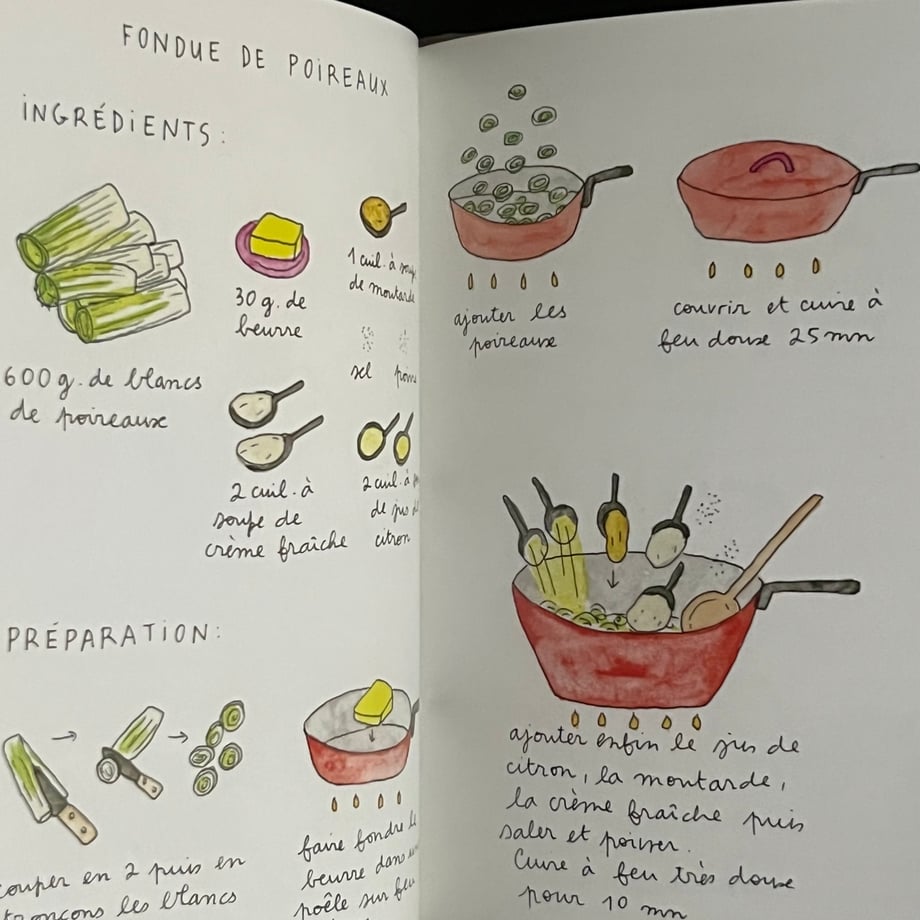 FONDUE DE POIREAUX
INGRÉDIENTS :
600 g. de blancs
de poireaux
30 g. de
beurre
1 cuil. à
de moutarde
sel
2 cuil. à
soupe de
crème fraîche
2 cuil. à
de jus
citron
PRÉPARATION :
couper en 2 puis en
tronçons les blancs
faire fondre
beurre dans
poêle sur feu
ajouter les
poireaux
couvrir et cuire à
feu doux 25 mn
ajouter enfin le jus de
citron, la moutarde,
la crème fraîche puis
saler et poivrer.
Cuire à feu très doux
pour 10 mn